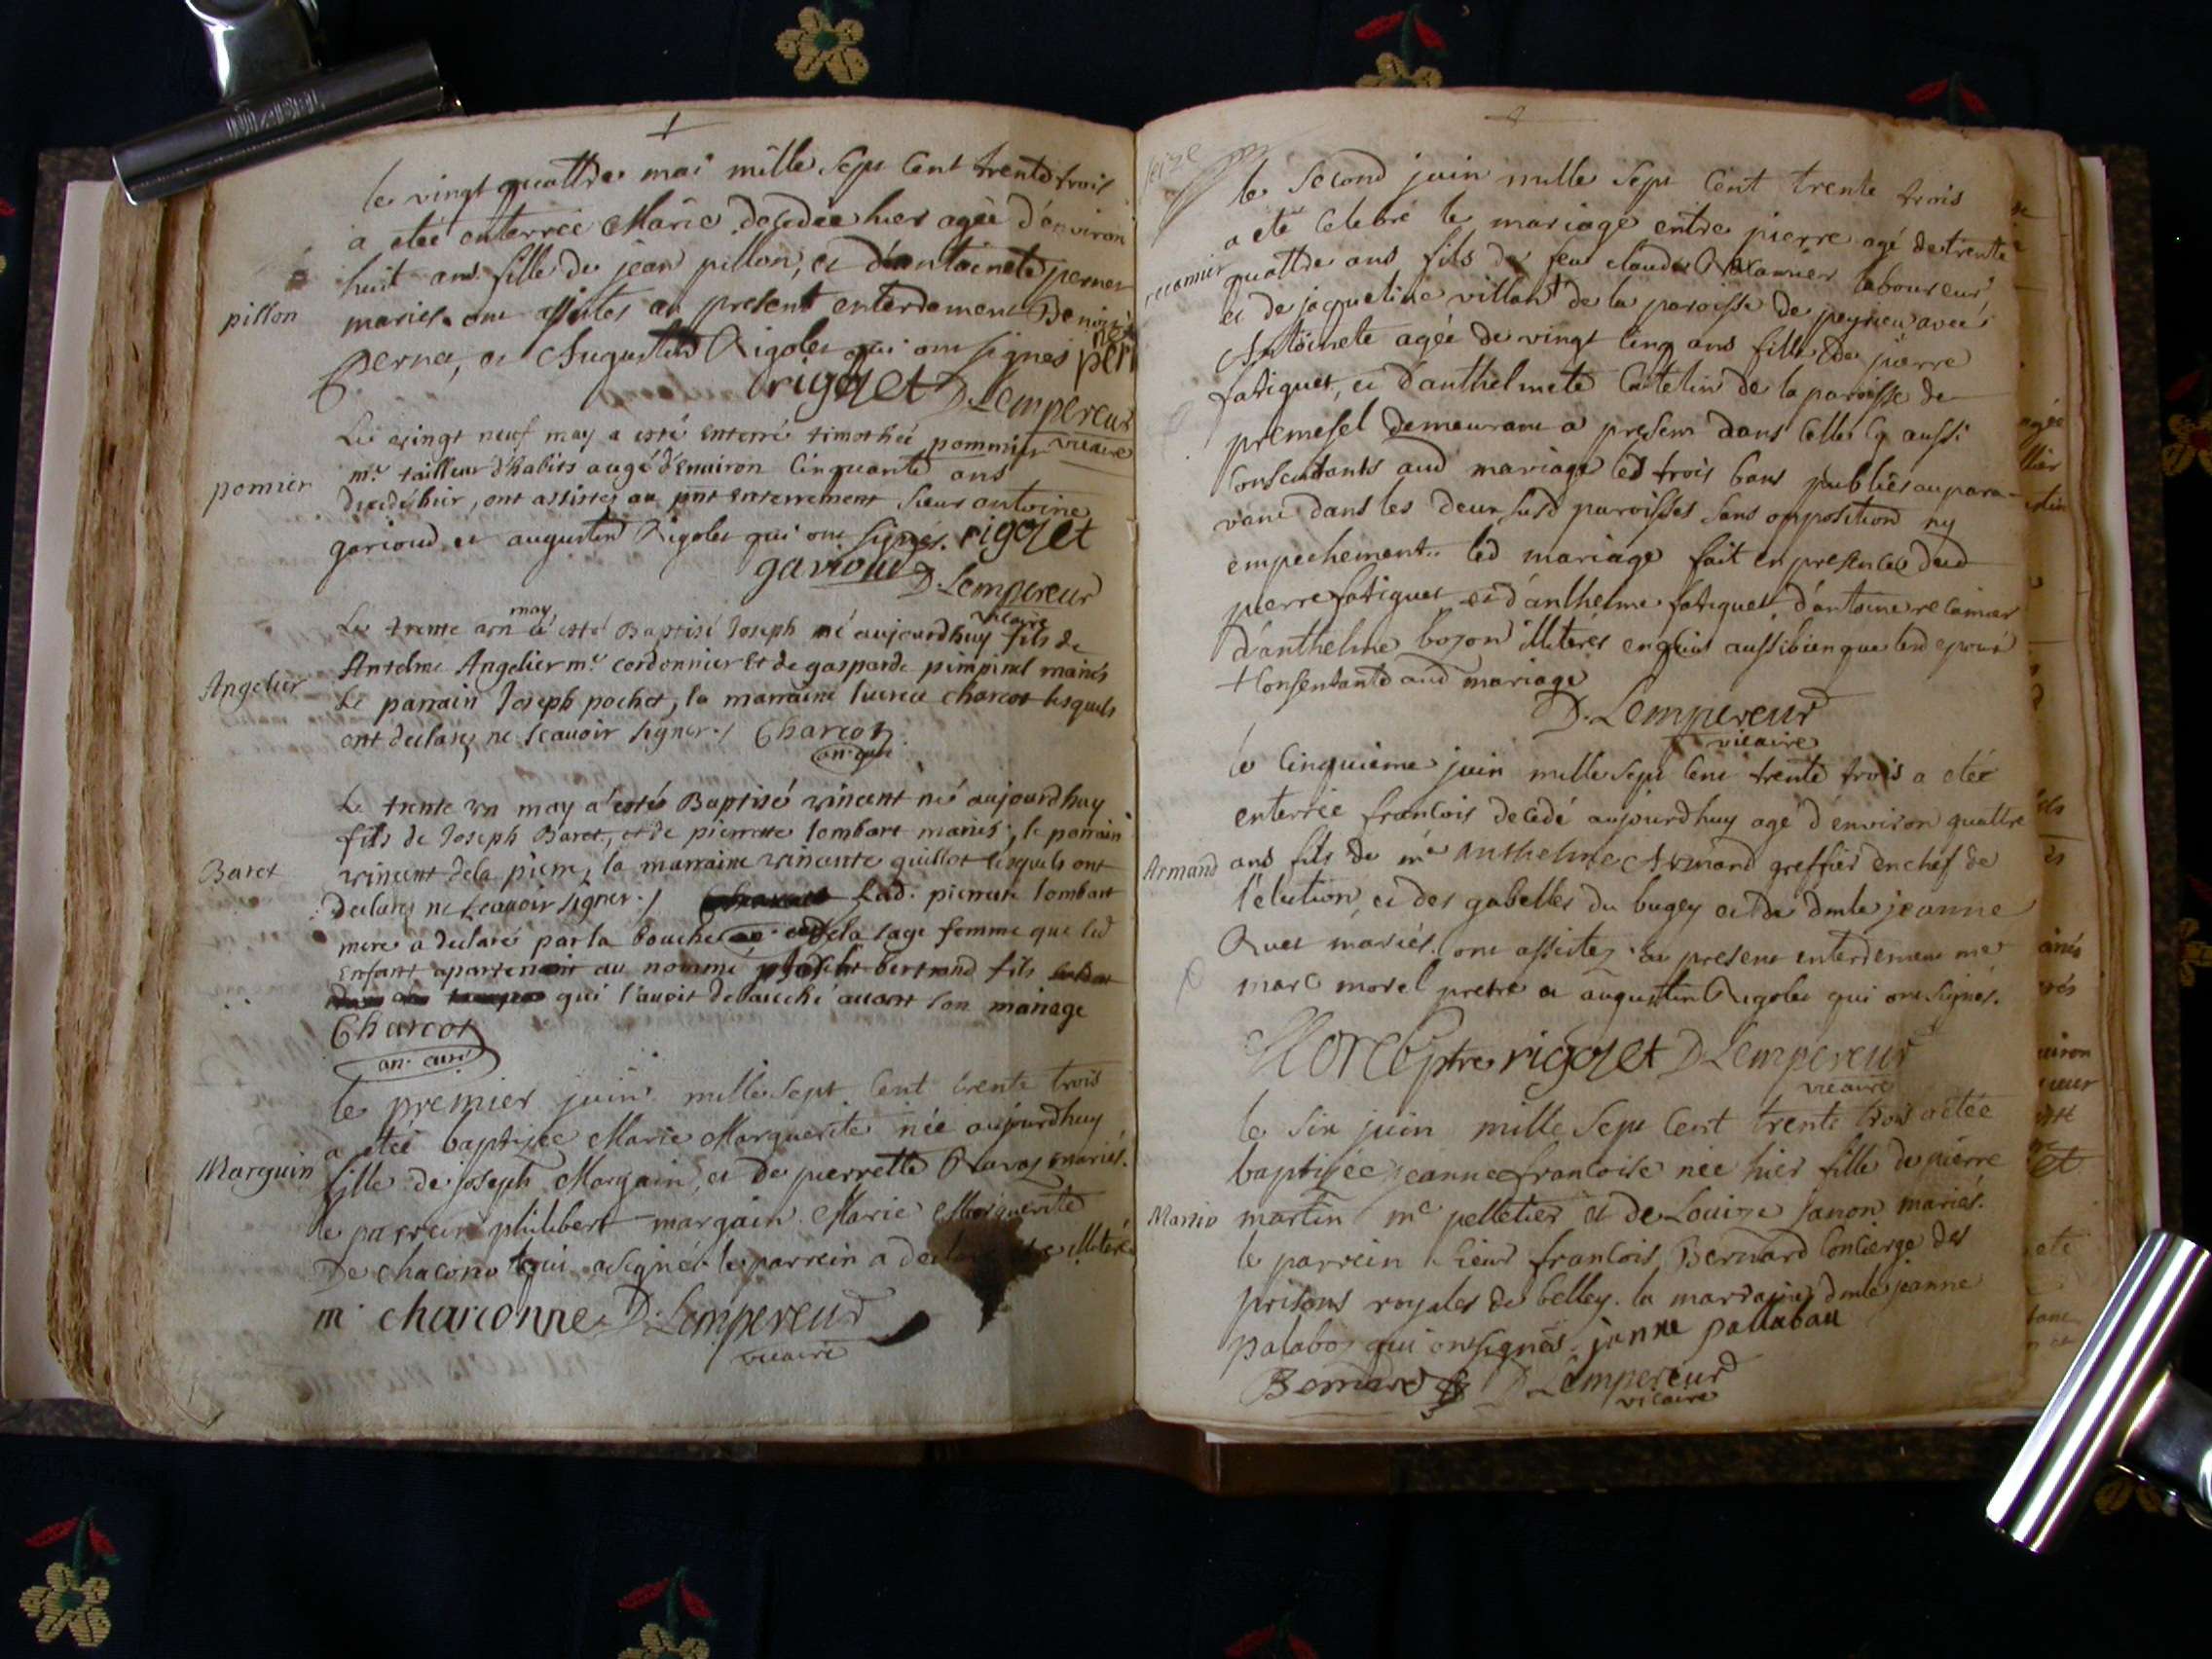 le vingt quattre mai mille sept cent trente trois
a etée enterrée Marie decedée hier agée d'environ
huit ans fille de jean pillon, et d'antoinete pernet
pillon
mariés. ont assistes au present enterdement Benoit
perne, et Augustin Rigolet qui ont signés
rigolet D. Lempereur
vicaire
Le vingt neuf may a esté enterré timothée pommier
pomier
me. tailleur d'habits augé d'enuiron cinquante ans
decedé hier, ont assistes au pnt enterrement sieur antoine
garioud et augustin Rigolet qui ont signés. rigolet
garioud D. Lempereur
vicaire
Le trente vn may a esté Baptisé Joseph né aujourdhuy fils de
Antelme Angelier me. cordonnier Et de gasparde pimpinel mariés
Angelier
Le parrain Joseph pochet, la marraine lucrece charcot lesquels
ont declarez ne scauoir signer./ Charcot
an. curé
Le trente vn may a esté Baptisé vincent né aujourdhuy
fils de Joseph Baret, et de pierrette lombart mariés, le parrain
Baret
vincent dela pierre, la marraine vincente guillot lesquels ont
declarez ne scauoir signer./ Lad. pierrette lombart
mere a declaré par la bouche dela sage femme que led
enfant apartenoit au nommé bertrand fils
qui l'auoit debauché auant son mariage
Charcot
an. curé
le premier juin mille sept cent trente trois
a etée baptisée Marie Marguerite née aujourdhuy
Marguin
fille de joseph Margain, et de pierrette Ravaz mariés.
le parrein philibert margain. Marie Marguerite
De chacono qui a signée le parrein a illiteré
m. charconne D. Lempereur
vicaire
seize
le second juin mille sept cent trente trois
a eté celebré le mariage entre pierre agé de trente
recamier
quattre ans fils de feu claude Recamier laboureur,
et de jacqueline villant de la paroisse de peyrieu avec
Antoinete agée de vingt cinq ans fille de pierre
fatiguet, et d'anthelmete Catelin de la paroisse de
premesel demeurant a present dans celle cy aussi
Consentants aud mariage les trois bans publiés aupara-
vant dans les deux susd paroisses sans opposition ny
empechement. led mariage fait en presence dud
pierre fatiguet et d'anthelme fatiguet d'antoine recamier
d'anthelme bozon illiterés enquis aussi bien que led epoux
+ Consentants aud mariage
D. Lempereur
vicaire
le cinquieme juin mille sept cent trente trois a etée
enterrée francois decedé aujourdhuy agé d'environ quattre
Armand
ans fils de me anthelme Armand greffier en chef de
l'election, et des gabelles du bugey et de dmle jeanne
Ruet mariés. ont assistez au present enterdement me
marc morel pretre et augustin Rigolet qui ont signés.
Morel ptre rigolet D. Lempereur
vicaire
le six juin mille sept cent trente trois a etée
baptisée jeanne francoise née hier fille de pierre
Martin
martin me pelletier et de Louize janon mariés.
le parrein sieur francois Bernard Concierge des
prisons royales de belley. la marraine dmle jeanne
palaboz qui ont signés. janne pallabau
Bernard D. Lempereur
vicaire